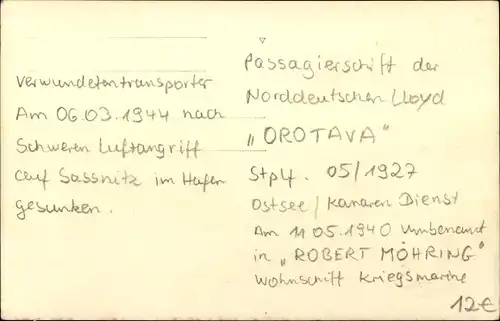 Verwundetentransporter
Am 06.03.1944 nach
Schweren Luftangriff
auf Sassnitz im Hafen
gesunken.
Passagierschift der
Norddeutschen Lloyd
„OROTAVA"
Stplf. 05/1927
Ostsee/Kanaren Dienst
Am 11 05.1940 Umbenannt
in „ROBERT MÖHRING"
Wohnschiff Kriegsmarine
12€